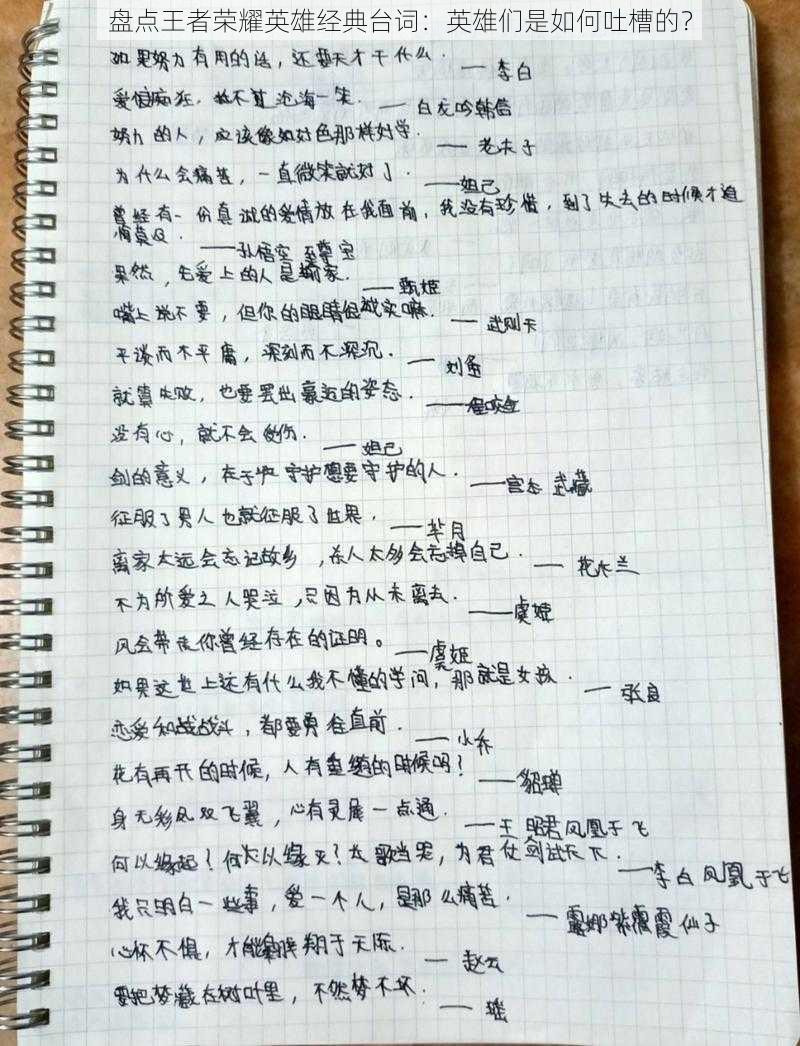 盘点王者荣耀英雄经典台词：英雄们是如何吐槽的？
如果努力有用的话，还要天才干什么. —李白
爱恨痴狂，抵不过沧海一笑. —白龙吟韩信
努力的人，应该像如好色那样好学. —老夫子
为什么会痛苦，一直微笑就好了. —妲己
曾经有一份真诚的爱情放在我面前，我没有珍惜，到了失去的时候才追
悔莫及. —孙悟空 至尊宝
果然，先爱上的人是输家. —甄姬
嘴上说不要，但你的眼睛很诚实嘛. —武则天
平淡而不平庸，深刻而不深沉. —刘备
就算失败，也要摆出豪迈的姿态. —程咬金
没有心，就不会受伤. —妲己
剑的意义，在于 守护想要守护的人. —宫本 武藏
征服了男人也就征服了世界. —芈月
离家太远会忘记故乡，杀人太多会忘掉自己. —花木兰
不为所爱之人哭泣，只因为从未离去. —虞姬
风会带走你曾经存在的证明。—虞姬
如果这世上还有什么我不懂的学问，那就是女孩. —张良
恋爱和战战斗，都要勇往直前. —小乔
花有再开的时候，人有重逢的时候吗？—貂蝉
身无彩凤双飞翼，心有灵犀一点通. —王昭君凤凰于飞
何以缘起？何以缘灭？长歌当哭，为君仗剑试天下. —李白凤凰于飞
我只明白一些事，爱一个人，是那么痛苦. —露娜紫霞仙子
心怀不惧，才能翱翔于天际. —赵云
要把梦藏在树叶里，不然梦不坏. —瑶